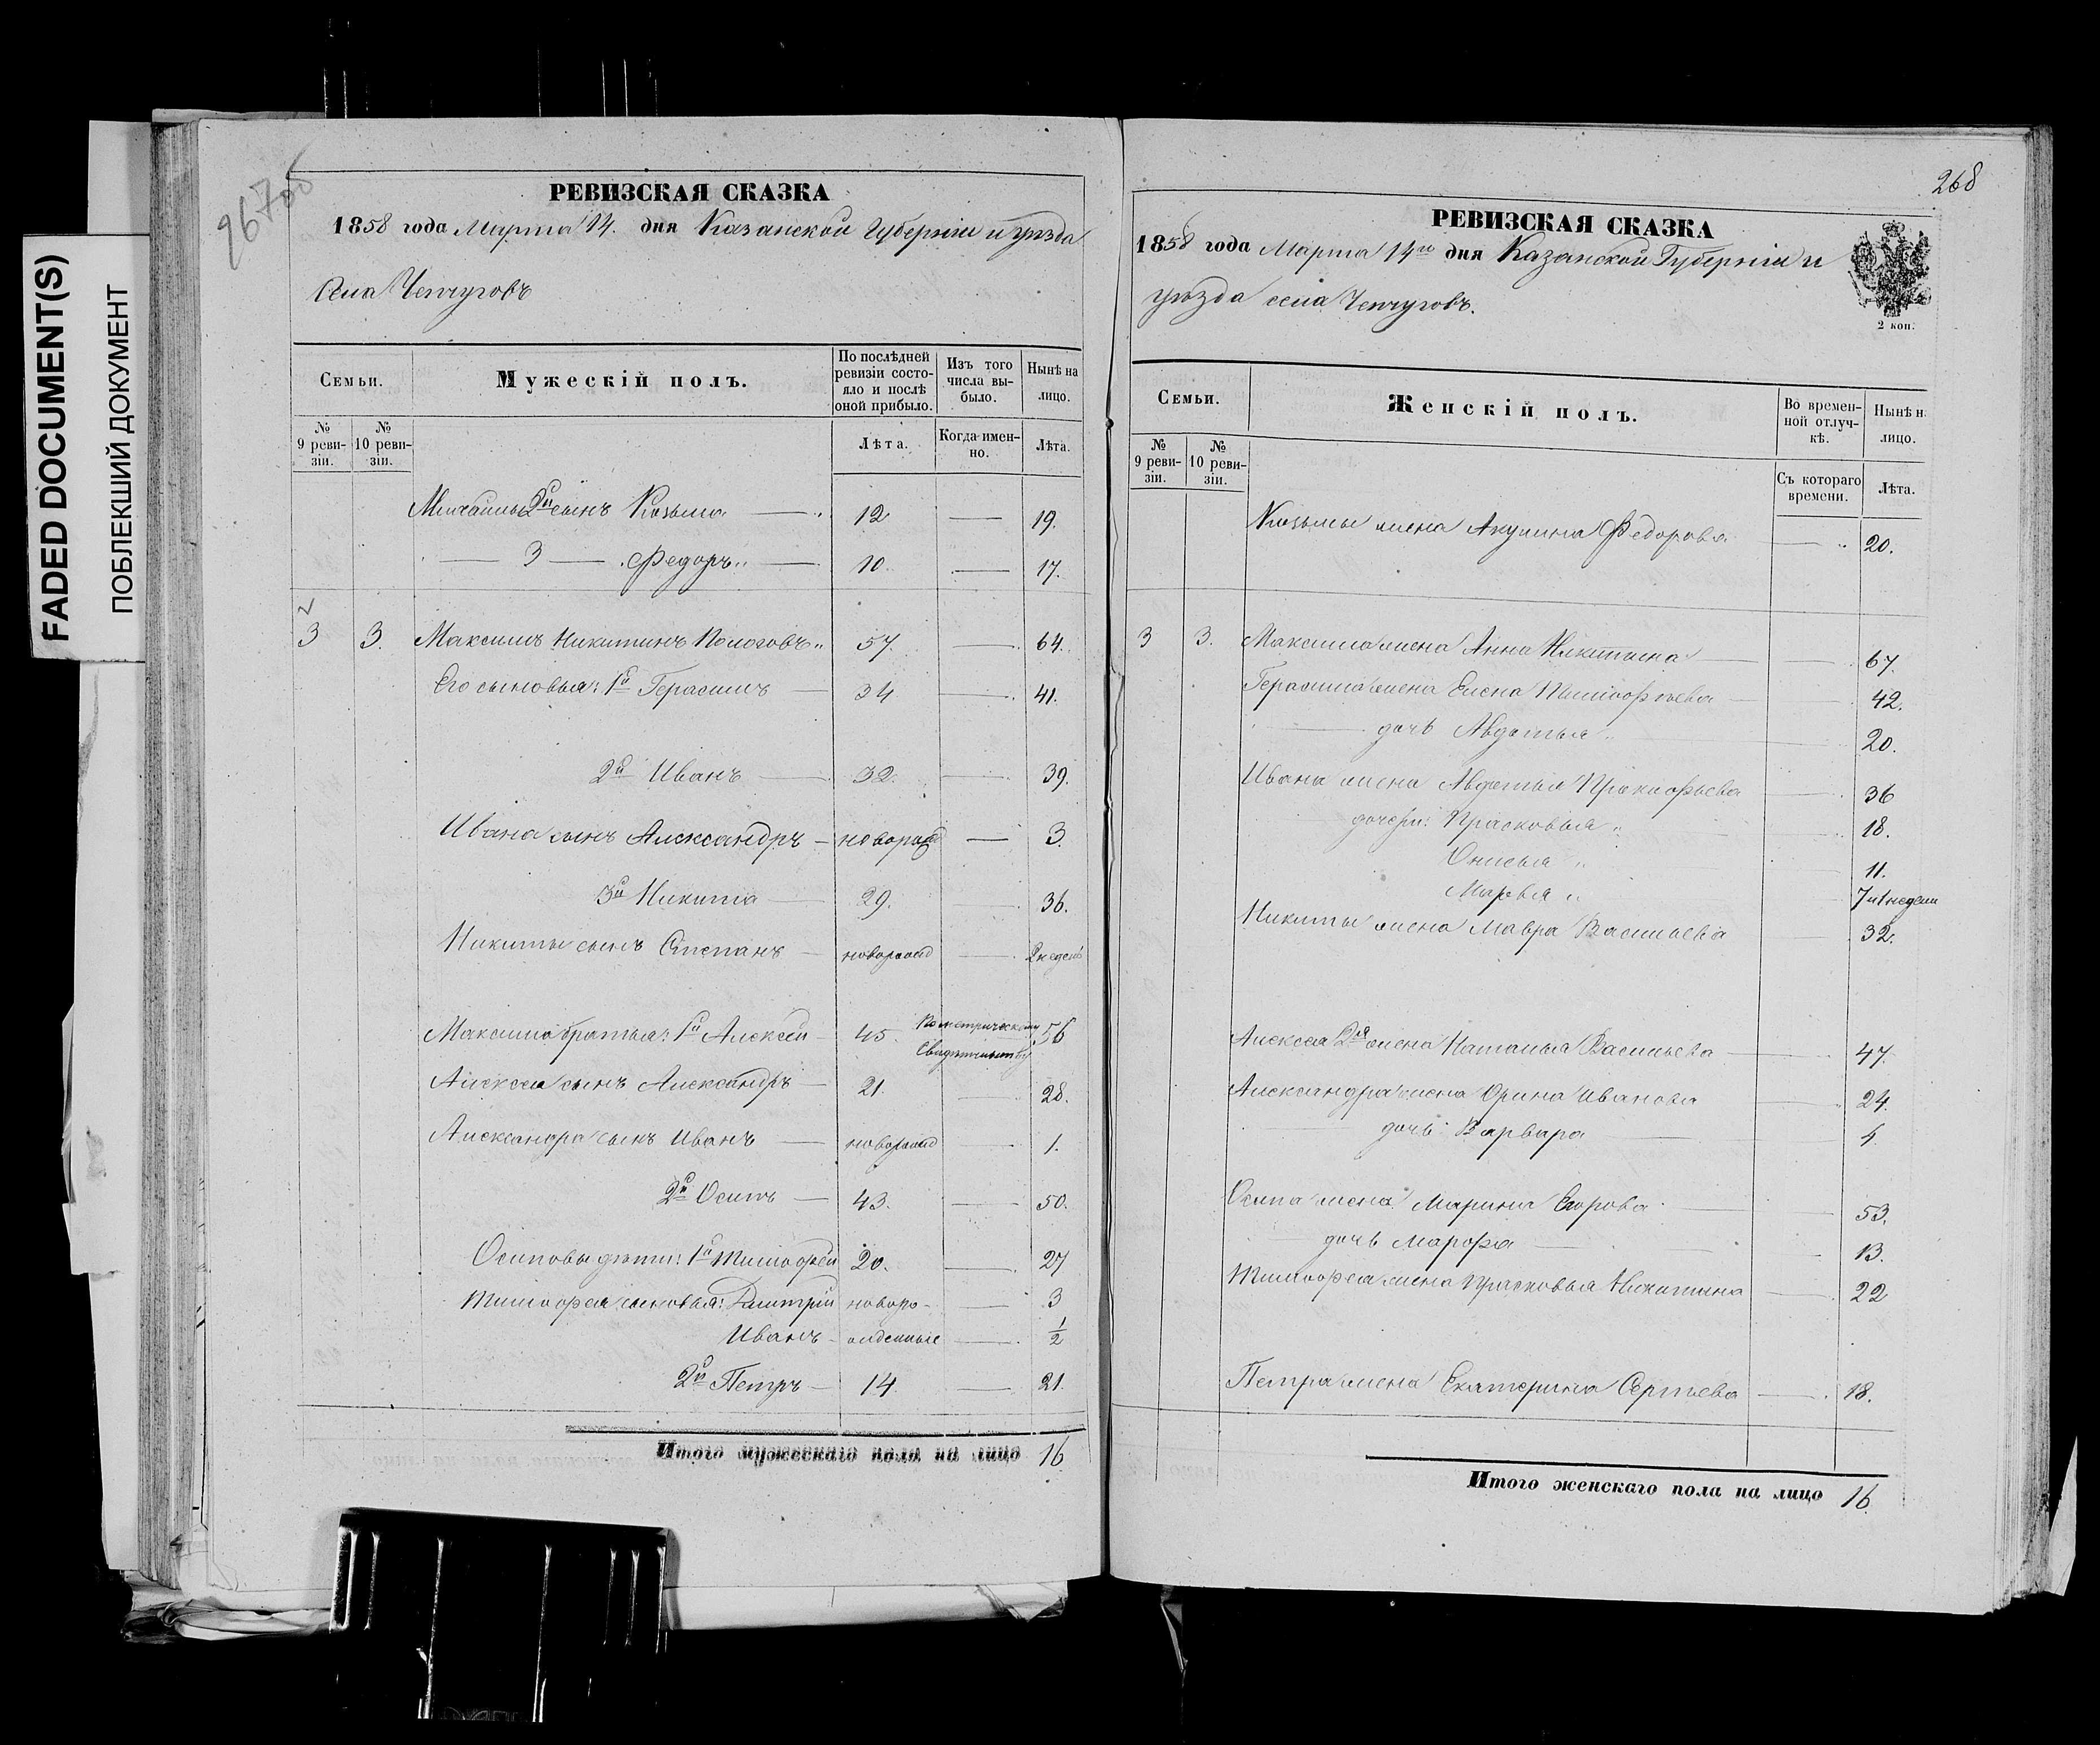 FADED DOCUMENT(S)
ПОБЛЕКШИЙ ДОКУМЕНТ
267об
РЕВИЗСКАЯ СКАЗКА
1858 года Марта 14. дня Казанской Губернiи и уѣзда
Села Чепчуговъ
Семьи.
Мужескiй полъ.
По послѣдней ревизiи состояло и послѣ оной прибыло.
Изъ того числа выбыло.
Нынѣ на лицо.
№ 9 ревизiи.
№ 10 ревизiи.
Лѣта.
Когда именно.
Лѣта.
Михайлы 2й сынъ Козьма — 12 — 19.
— 3 — Федоръ „ — 10. — 17.
3 3. Максимъ Никитинъ „ 57. — 64.
Его сыновья: 1й Герасимъ — 34 — 41.
2й Иванъ — 32. — 39.
Ивана сынъ Александръ — новорожд — 3.
3й Никита — 29. — 36.
Никиты сынъ Степанъ — новорожд — 2 недель
Максима братья: 1й Алексей — 45. По метрическому Свидѣтельству 56
Алексея сынъ Александръ — 21. — 28.
Александра сынъ Иванъ — новорожд — 1.
2й Осипъ — 43. — 50.
Осиповы дѣти: 1й Тимофей 20. — 27
Тимофея сыновья: Дмитрiй новоро- — 3
Иванъ - жденные — 1/2
2й Петръ — 14 — 21.
Итого мужескаго пола на лицо 16
268
РЕВИЗСКАЯ СКАЗКА
1858 года Марта 14го дня Казанской Губернiи и
уѣзда села Чепчуговъ.
2 коп.
Семьи.
Женскiй полъ.
Во временной отлучкѣ.
Нынѣ н. лицо.
№ 9 ревизiи.
№ 10 ревизiи.
Съ котораго времени.
Лѣта.
Козьмы жена Акулина Федорова — 20.
3 3. Максима жена Анна Никитина — 67.
Герасима жена Елена Тимофѣева — 42.
— дочь Авдотья „ 20.
Ивана жена Авдотья Прокофьева — 36
дочери: Прасковья „ 18.
Онисья „ 11.
Марья „ 7 и 1 недели
Никиты жена Мавра Васильева — 32.
Алексея 2я жена Наталья Васильева — 47.
Александра жена Орина Иванова — 24.
дочь Варвара — 4.
Осипа жена Марина Егорова — 53.
дочь Марфа — 13.
Тимофея жена Прасковья Никитина — 22
Петра жена Екатерина Сергѣева — 18.
Итого женскаго пола на лицо 16.